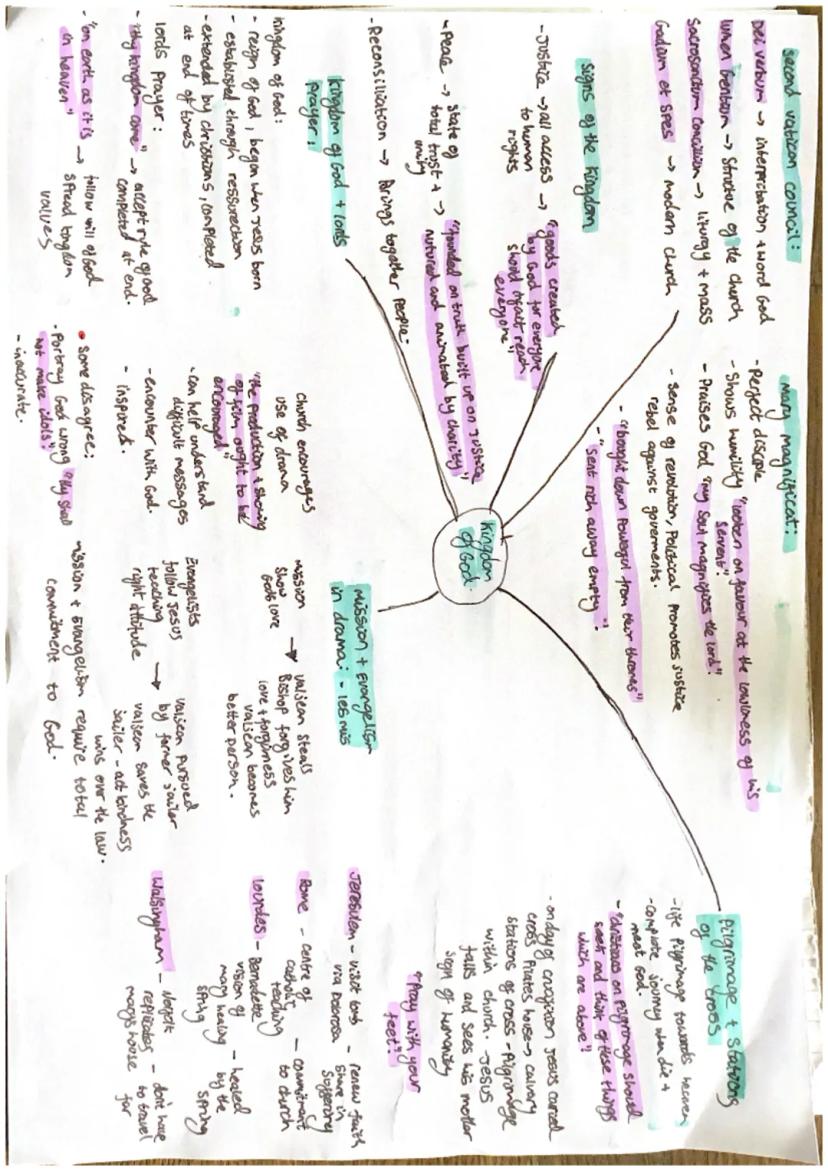 second vatican council:
Dei verbum → interpritation + word God
lumen Gentium → Structure of the church
Sacrosanctum Concilium → liturgy + mass
Gadium et spes → modern church
Mary magnificat:
- Perfect disciple
- Shows humility "looken on favour at the lowliness of his
servent"
- Praises God "my soul magnifies the lord".
- Sense of revolution, Political Promotes justice
rebel against goverments.
- "bought down powerful from their thrones"
- "sent rich away empty".
Pilgrimage + Stations
of the cross
- life pilgrimage towards heaven
- complete journey when die +
meet God.
- "christians on pilgrimage should
seek and think of these things
which are above"
- on day of crucifiction Jesus carried
cross Pilates house → calvary
stations of cross - Pilgrimage
within church. - Jesus
falls and sees his mother
sign of humanity
"Pray with your
feet".
Jeresulem - visit tomb - renew faith
via Dolorosa share in
suffering
Rome - Centre of - commitment
catholic to church
teaching
Lourdes - Bernadette
vision of
mary healing - healed
spring by the
spring
Walsingham - Nazareth
replicates - don't have
marys house to travel
far
signs of the kingdom
- Justice → all access → "goods created
to human by God for everyone
rights should infact reach
everyone"
- Peace → state of
total trust + → "founded on truth built up on justice
unity nutured and animated by charity"
- Reconsiliation → Brings together people.
Kingdom
of God.
Kingdom of God + lords
prayer:
Kingdom of God:
- reign of God, began when Jesus born
- established through ressurection
- extended by christians, completed
at end of times
lords Prayer:
- "thy kingdom come" → accept rule of god
completed at end.
- "on earth as it is → follow will of God
in heaven" spread kingdom
values
mission + evangelism
in drama: - les mis
church encourages
use of drama
"the production + showing
of film ought to be
encouraged"
- can help understand
difficult messages
- encounter with God.
- inspired.
• Some disagree:
- Portray God wrong "thy shall
not make idols".
- inaccurate.
mission → valjean steals
show Bishop forgives him
Gods love love + forgivness
valjean becomes
better person.
Evangelists
follow Jesus
teaching → valjean pursued
right attitude by former jailer
valjean saves the
jailer - act kindness
wins over the law.
mission + Evangelism require total
commitment to God.